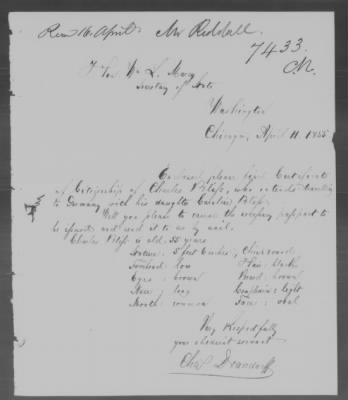 Rec 16. April. Mr Riddall.
7433.
To Hon Wm L. Marcy
Secretary of State
Washington
Chicago, April 11. 1855
Enclosed please find Certificate
of Citizenship of Charles who intends travelling
to Germany with his daughter Caroline
Will you please to cause the necessary passport to
be issued and send it to us by mail.
Charles is old 55 years
Stature: 5 feet 6 inches, Chin: round
Forehead: low Hair: black
Eyes: brown Beard: brown
Nose: long Complexion: light
Mouth: common Face: oval
Very Respectfully
your obedient servant
Chs